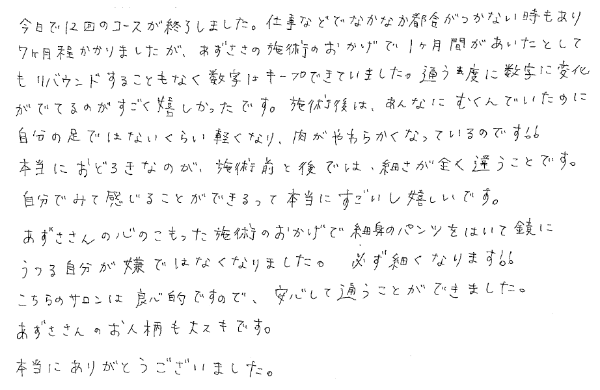 今日で12回のコースが終了しました。仕事などでなかなか都合がつかない時もあり
7ヶ月程かかりましたが、あずささの施術のおかげで1ヶ月間があいたとして
もリバウンドすることもなく数字はキープできていました。通う度に数字に変化
がでてるのがすごく嬉しかったです。施術後は、あんなにむくんでいたのに
自分の足ではないくらい軽くなり、肉がやわらかくなっているのです!!
本当におどろきなのが、施術前と後では、細さが全く違うことです。
自分でみて感じることができるって本当にすごいし嬉しいです。
あずささんの心のこもった施術のおかげで細身のパンツをはいて鏡に
うつる自分が嫌ではなくなりました。 必ず細くなります!!
こちらのサロンは良心的ですので、安心して通うことができました。
あずささんのお人柄も大スキです。
本当にありがとうございました。